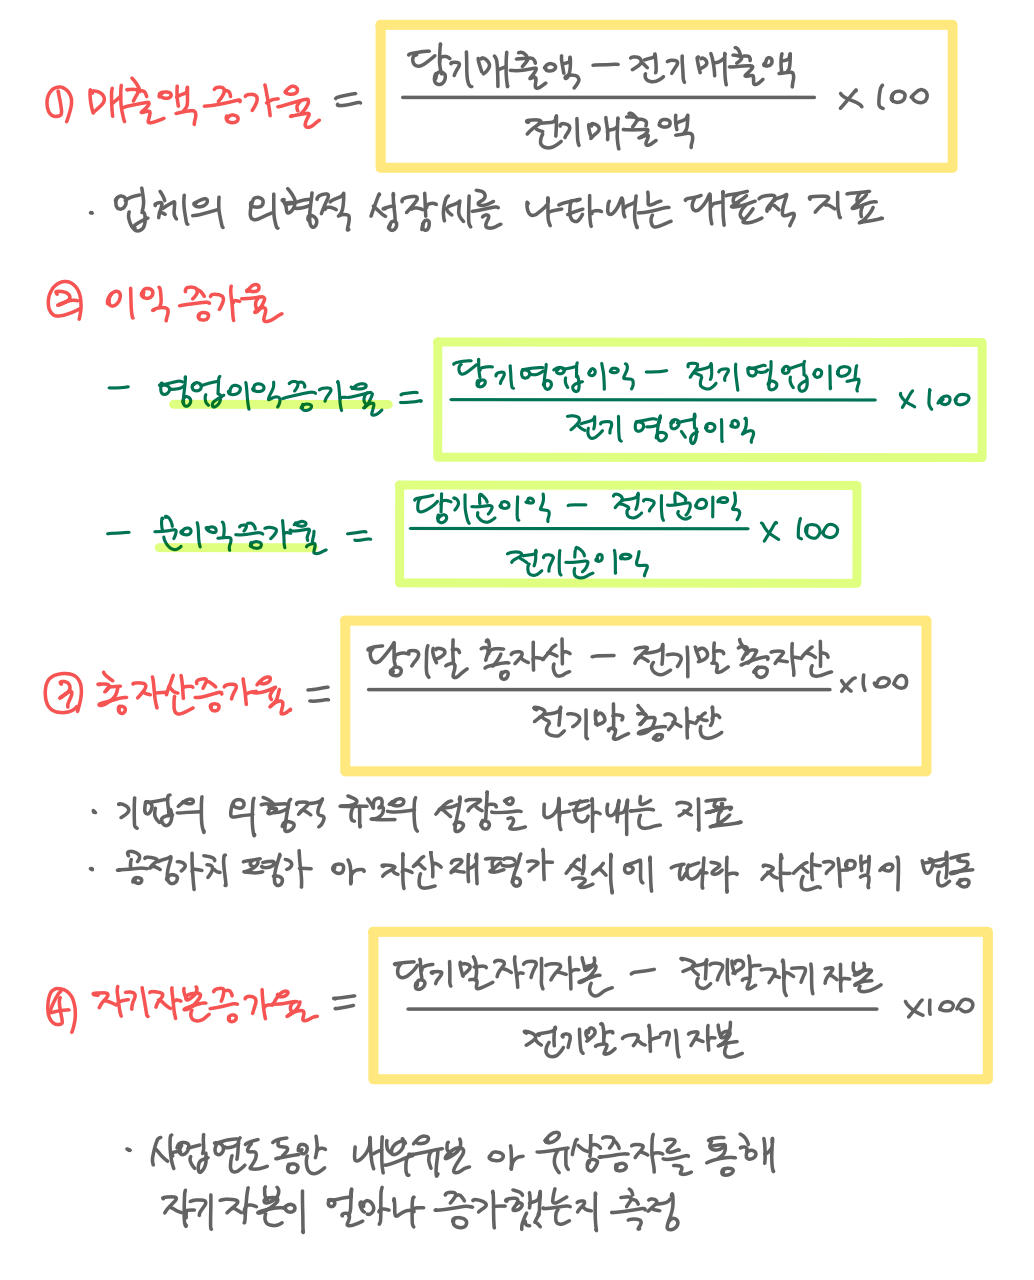 당기매출액 - 전기매출액
① 매출액증가율 = × 100
전기매출액
· 업체의 외형적 성장세를 나타내는 대표적 지표
② 이익증가율
당기영업이익 - 전기영업이익
- 영업이익증가율 = × 100
전기영업이익
당기순이익 - 전기순이익
- 순이익증가율 = × 100
전기순이익
당기말 총자산 - 전기말 총자산
③ 총자산증가율 = ×100
전기말 총자산
· 기업의 외형적 규모의 성장을 나타내는 지표
· 공정가치 평가 or 자산재평가 실시에 따라 자산가액이 변동
당기말자기자본 - 전기말자기자본
④ 자기자본증가율 = ×100
전기말자기자본
· 사업연도동안 내부유보 or 유상증자를 통해
자기자본이 얼마나 증가했는지 측정